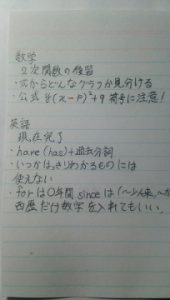 数学
2次関数の復習
・式からどんなグラフか見分ける
・公式 (x-P)²+9 符号に注意!
英語
現在完了
・have (has)+過去分詞
・いつかはっきりわかるものには
使えない
・forは○年間 sinceは(〜以来、〜か
西暦だけ数字を入れてもいい。